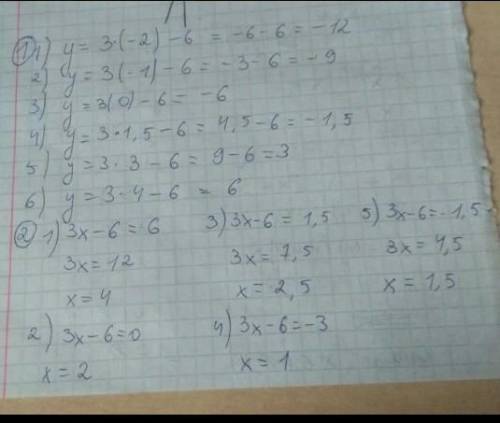 ① 1) y = 3·(-2) - 6 = -6 - 6 = -12
2) y = 3(-1) - 6 = -3 - 6 = -9
3) y = 3(0) - 6 = -6
4) y = 3·1,5 - 6 = 4,5 - 6 = -1,5
5) y = 3·3 - 6 = 9 - 6 = 3
6) y = 3·4 - 6 = 6
② 1) 3x - 6 = 6
3x = 12
x = 4
2) 3x - 6 = 0
x = 2
3) 3x - 6 = 1,5
3x = 7,5
x = 2,5
4) 3x - 6 = -3
x = 1
5) 3x - 6 = -1,5
3x = 4,5
x = 1,5